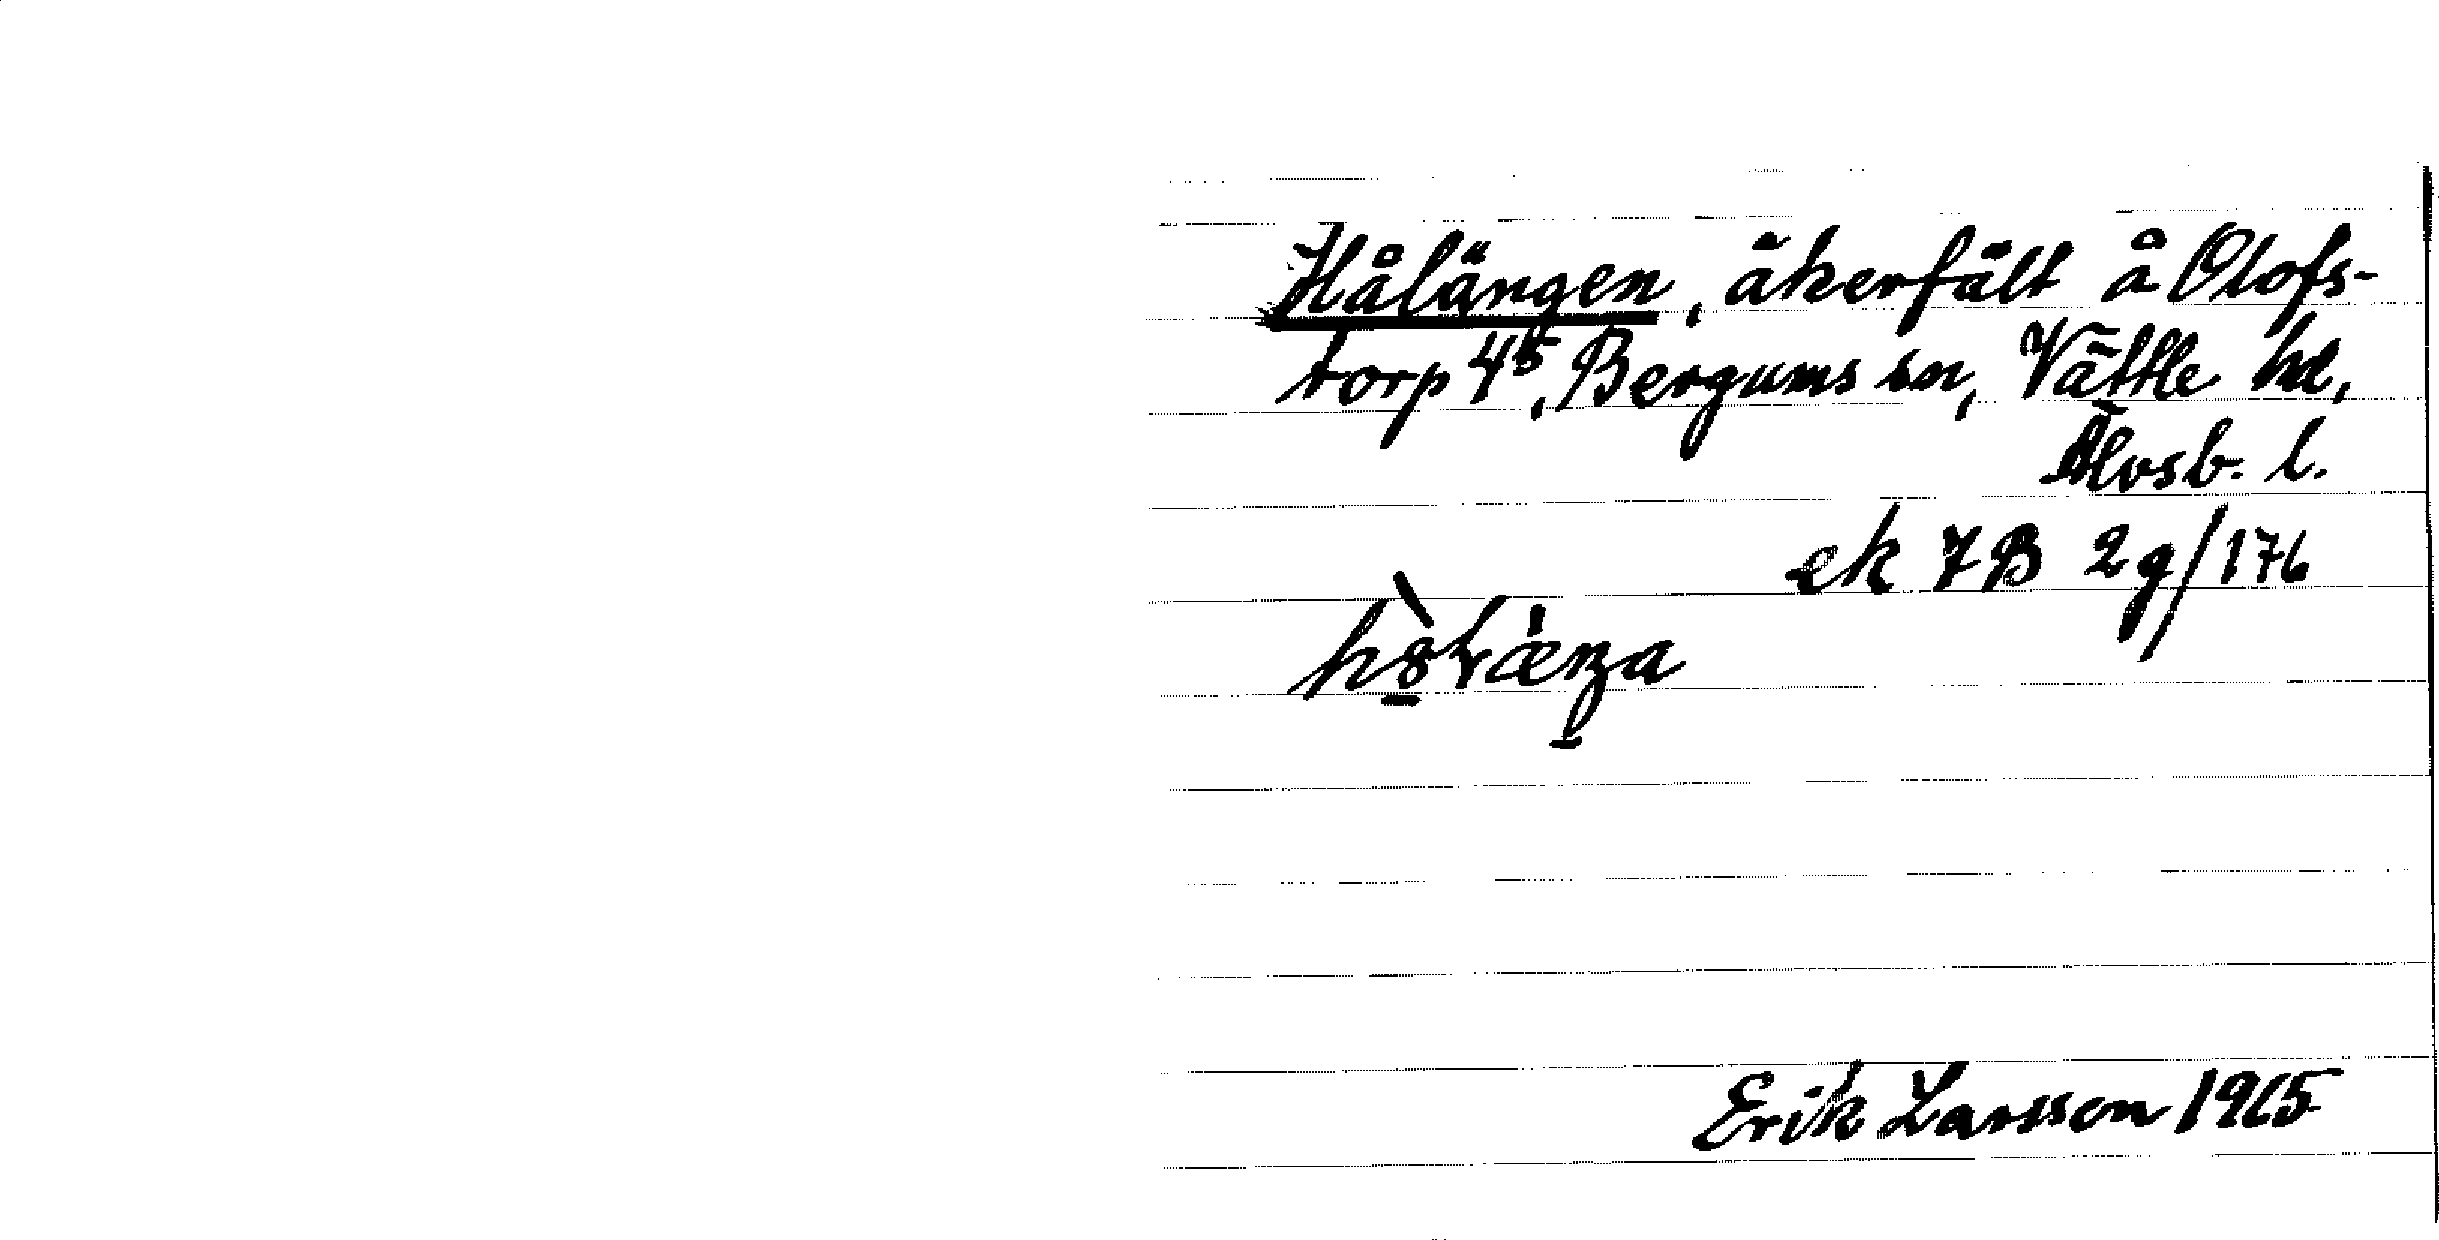 Hålängen, åkerfält å Olofs-
torp 4⁵, Bergums sn, Vättle hd,
Älvsb. l.
ek 7B 2g/176
Erik Larsson 1965